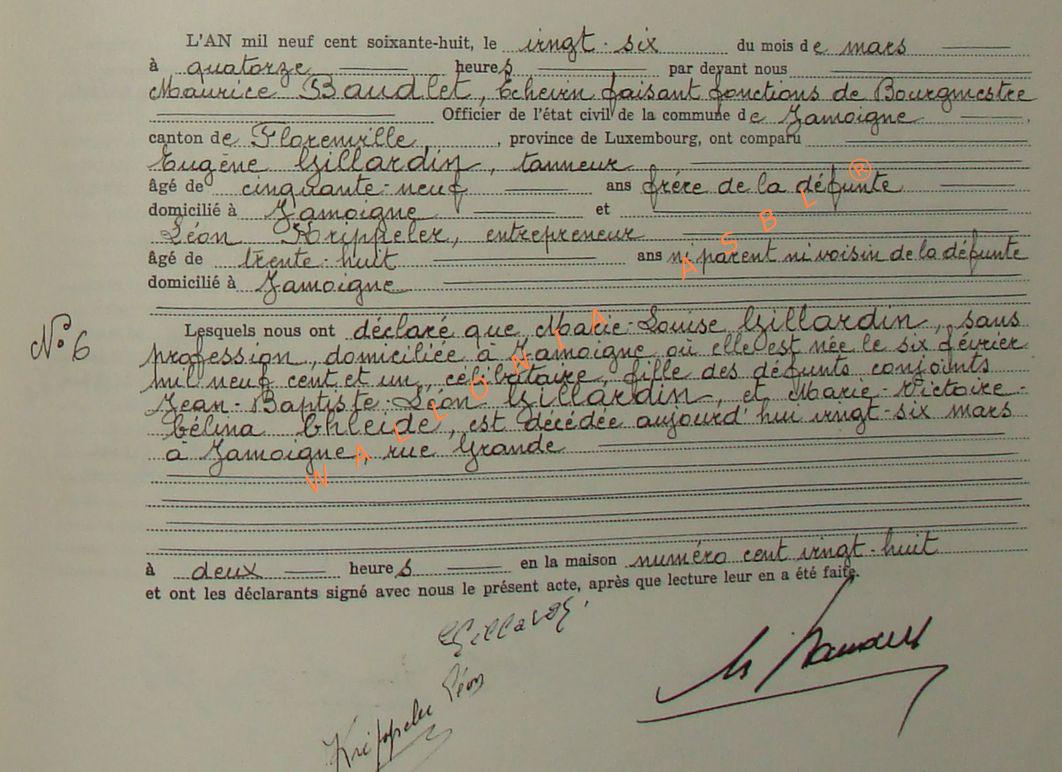 L'AN mil neuf cent soixante-huit, le vingt-six du mois de mars
à quatorze heures par devant nous
Maurice Baudlet, Echevin faisant fonctions de Bourgmestre
Officier de l'état civil de la commune de Jamoigne,
canton de Florenville, province de Luxembourg, ont comparu
Eugène Gillardin, tanneur
âgé de cinquante-neuf ans frère de la défunte
domicilié à Jamoigne et
Léon Krippeler, entrepreneur
âgé de trente-huit ans ni parent ni voisin de la défunte
domicilié à Jamoigne
N° 6
Lesquels nous ont déclaré que Marie-Louise Gillardin, sans
profession, domiciliée à Jamoigne où elle est née le six février
mil neuf cent et un, célibataire, fille des défunts conjoints
Jean-Baptiste-Léon Gillardin, et Marie-Victoire-
Célina Chleide, est décédée aujourd'hui vingt-six mars
à Jamoigne, rue Grande
à deux heures en la maison numéro cent vingt-huit
et ont les déclarants signé avec nous le présent acte, après que lecture leur en a été faite.
Gillardin
Krippeler Léon
WALLONIA ASBL ®